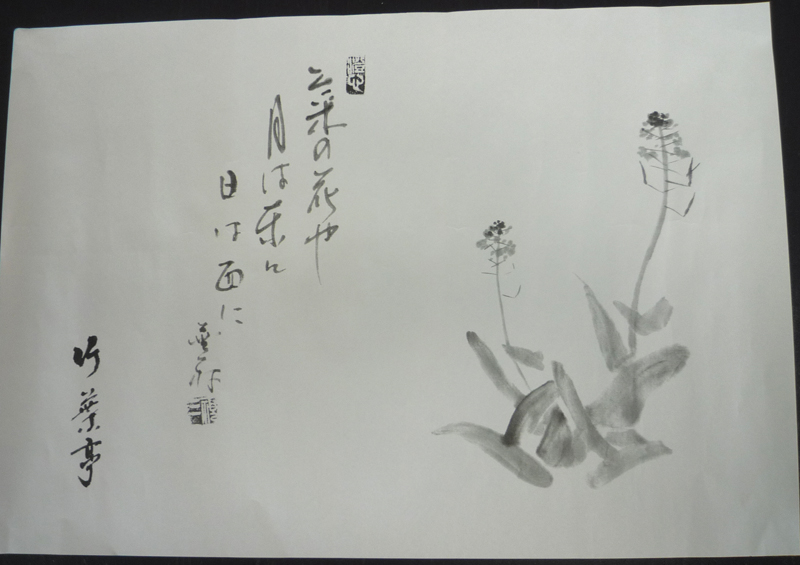 菜の花や
月は東に
日は西に
蕪村
竹葉亭